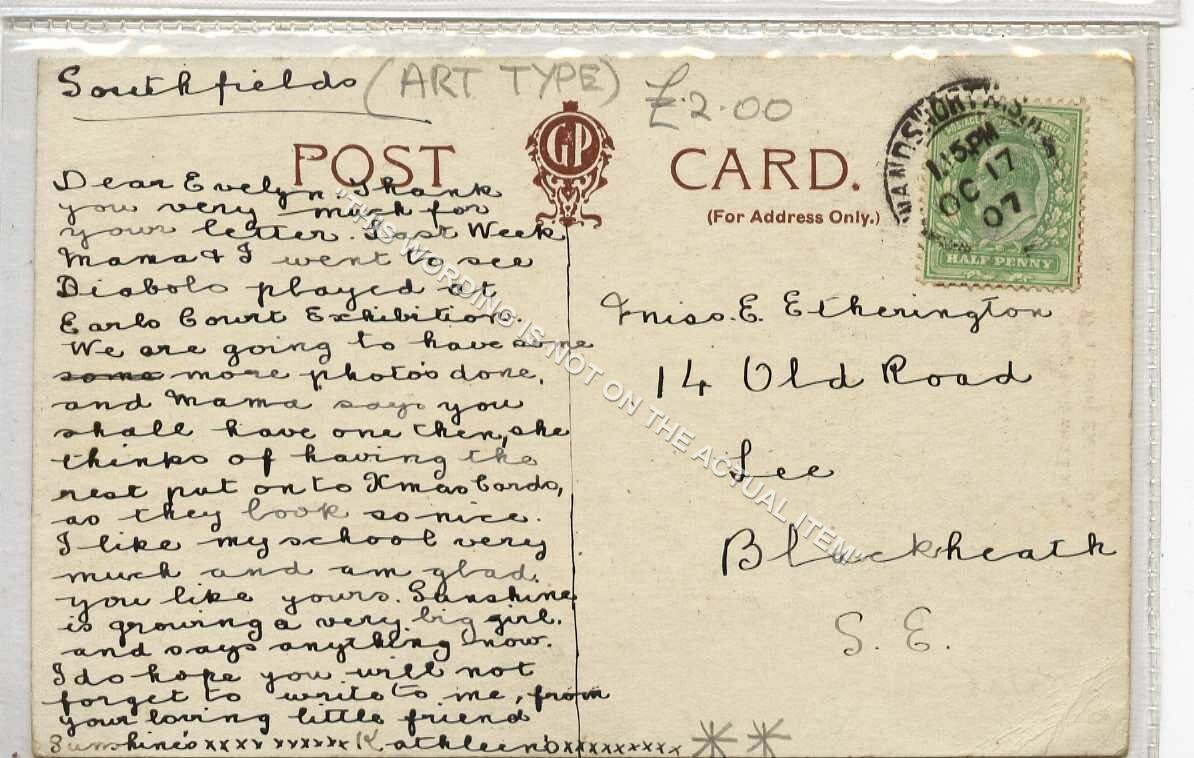 Southfields (ART TYPE) £2.00
POST GP CARD.
(For Address Only.)
WANDSWORTH S.W.
1.15PM
OC 17
07
POSTAGE
HALF PENNY
Dear Evelyn. Thank
you very much for
your letter. Last Week
Mama & I went to see
Diabolo played at
Earls Court Exhibition.
We are going to have some
some more photo's done,
and Mama says you
shall have one then, she
thinks of having the
rest put onto Xmas Cards,
as they look so nice.
I like my school very
much and am glad
you like yours. Sunshine
is growing a very big girl.
and says anything now.
I do hope you will not
forget to write to me, from
your loving little friend
Sunshine's xxxx xxxxxx Kathleen's xxxxxxxxx
Miss. E. Etherington
14 Old Road
Lee
Blackheath
S. E.
"THIS WORDING IS NOT ON THE ACTUAL ITEM"